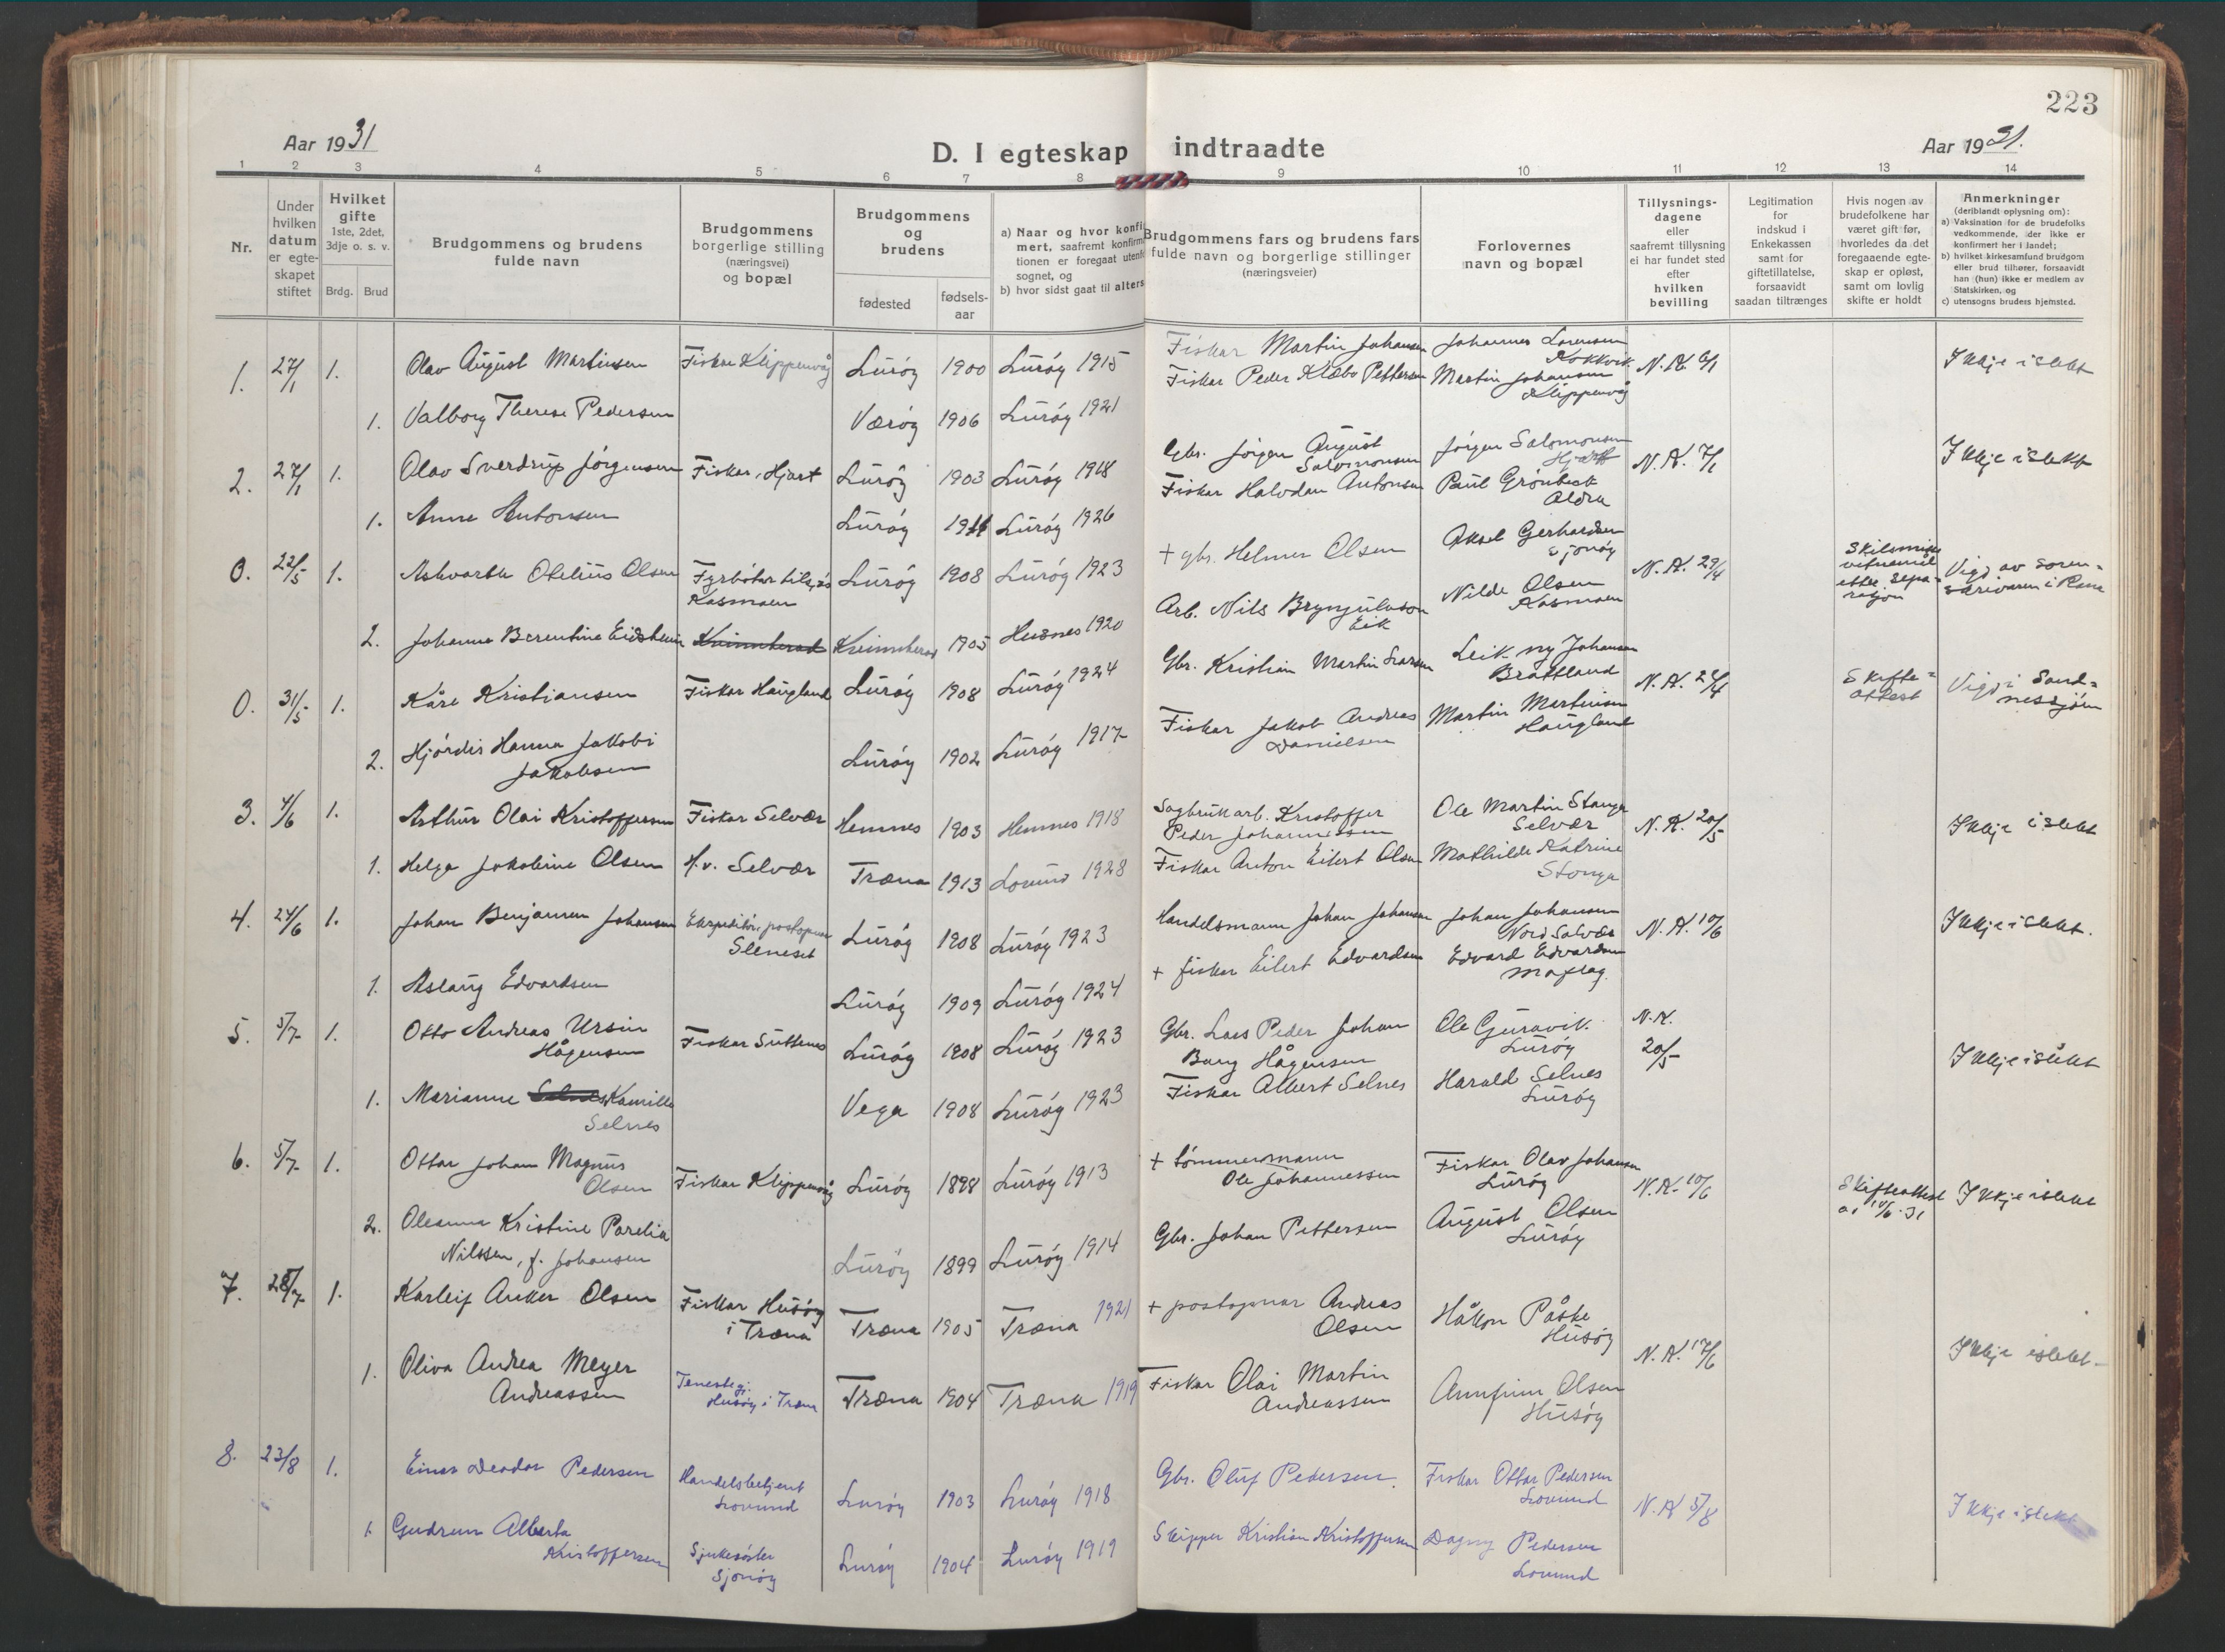 223
Aar 1931
D. I egteskap indtraadte
Aar 1931.
1 2 3 4 5 6 7 8 9 10 11 12 13 14
Nr.
Under hvilken datum er egte-skapet stiftet
Hvilket gifte 1ste, 2det, 3dje o. s. v.
Brdg. Brud
Brudgommens og brudens fulde navn
Brudgommens borgerlige stilling (næringsvei) og bopæl
Brudgommens og brudens
fødested
fødsels-aar
a) Naar og hvor konfi
mert, saafremt konfirm
tionen er foregaat utenf
sognet, og
b) hvor sidst gaat til alters
Brudgommens fars og brudens fars
fulde navn og borgerlige stillinger
(næringsveier)
Forlovernes
navn og bopæl
Tillysnings-
dagene
eller
saafremt tillysning
ei har fundet sted
efter
hvilken
bevilling
Legitimation
for
indskud i
Enkekassen
samt for
giftetillatelse,
forsaavidt
saadan tiltrænges
Hvis nogen av
brudefolkene har
været gift før,
hvorledes da det
foregaaende egte-
skap er opløst,
samt om lovlig
skifte er holdt
Anmerkninger
(deriblandt oplysning om):
a) Vaksination for de brudefolks
vedkommende, der ikke er
konfirmert her i landet;
b) hvilket kirkesamfund brudgom
eller brud tilhører, forsaavidt
han (hun) ikke er medlem av
Statskirken, og
c) utensogns bruders hjemsted.
1. 27/1 1. Olav August Martinsen Fiskar Klippenvåg Lurøy 1900 Lurøy 1915 Fiskar Martin Johansen Johannes Lorensen Kokkvik. N.K. 6/1 Ikkje i slekt
1. Valborg Therese Pedersen Værøy 1906 Lurøy 1921 Fiskar Peder Klæbo Pettersen Martin Johansen Klippenvåg
2. 27/1 1. Olav Sverdrup Jørgensen Fiskar, Hjart Lurøy 1903 Lurøy 1918 Gbr. Jørgen August Salomonsen Jørgen Salomonsen Hjart N.K. 7/1 Ikkje i slekt
1. Anne Antonsen Lurøy 1911 Lurøy 1926 Fiskar Halvdan Antonsen Paul Grønbeck Aldra
0. 22/5 1. Ashvarth Otelius Olsen Kasmoen Lurøy 1908 Lurøy 1923 + gbr. Helmer Olsen Aksel Gerhardsen Sjonøy N.K. 29/4 Skilsmisse
Vigj av Soren-
skrivaren i Rana
2. Johanne Berentine Eidsheim Kvinnherad 1905 Husnes 1920 Arb. Nils Brynjulvson Eik Nilde Olsen Kasmoen
0. 31/5 1. Kåre Kristiansen Fiskar Haugland Lurøy 1908 Lurøy 1924 Gbr. Kristian Martin Larsen Leik ny Johansen Brattland N.K. 24/4 Skifte-attest Vigj i Sand-nessjøen
2. Hjørdis Hanna Jakobi Jakobsen Lurøy 1902 Lurøy 1917 Fiskar Jakob Andreas Danielsen Martin Martinsen Haugland
3. 4/6 1. Arthur Olai Kristoffersen Fiskar Selvær Hemnes 1903 Hemnes 1918 Sagbrukarb. Kristoffer Peder Johannessen Ole Martin Stonga Selvær N.K. 20/5 Ikkje i slekt
1. Helga Jakobine Olsen H.v. Selvær Træna 1913 Lovund 1928 Fiskar Anton Eilert Olsen Mathilde Katrine Stonga
4. 24/6 1. Johan Benjamin Johansen Ekspeditør, postopnar Sleneset Lurøy 1908 Lurøy 1923 Handelsmann Johan Johansen Johan Johansen Nord Solvær N.K. 10/6 Ikkje i slekt.
1. Aslaug Edvardsen Lurøy 1909 Lurøy 1924 + fiskar Eilert Edvardsen Edvard Edvardsen
5. 5/7 1. Otto Andreas Ursin Hågensen Fiskar Lurøy 1908 Lurøy 1923 Gbr. Lars Peder Johan Bang Hågensen Ole Guravik Lurøy N.K. 20/5 Ikkje i slekt
1. Marianne Kamilla Selnes Vega 1908 Lurøy 1923 Fiskar Albert Selnes Harald Selnes Lurøy
6. 5/7 1. Ottar Johan Magnus Olsen Fiskar Klippenvåg Lurøy 1898 Lurøy 1913 + Tømmermann Ole Johannessen Fiskar Olav Johansen Lurøy N.K. 10/6 Skifteattest av 10/6 31 Ikkje i slekt
2. Oleanna Kristine Parelia Nilssen, f. Johansen Lurøy 1899 Lurøy 1914 Gbr. Johan Pettersen August Olsen Lurøy
7. 28/7 1. Karleif Anker Olsen Fiskar Husøy i Træna Træna 1905 Træna 1921 + postopnar Andreas Olsen Håkon Påske Husøy N.K. 17/6 Ikkje i slekt
1. Oliva Andrea Meyer Andreassen Tenestegj. Husøy i Træna Træna 1904 Træna 1919 Fiskar Olai Martin Andreassen Annfinn Olsen Husøy
8. 23/8 1. Einar Deodor Pedersen Handelsbetjent Lovund Lurøy 1903 Lurøy 1918 Gbr. Oluf Pedersen. Fiskar Ottar Pedersen Lovund N.K 5/8 Ikkje i slekt
1. Gudrun Alberta Kristoffersen Sjukesøster Sjonøy Lurøy 1904 Lurøy 1919 Skipper Kristian Kristoffersen Dagny Pedersen Lovund